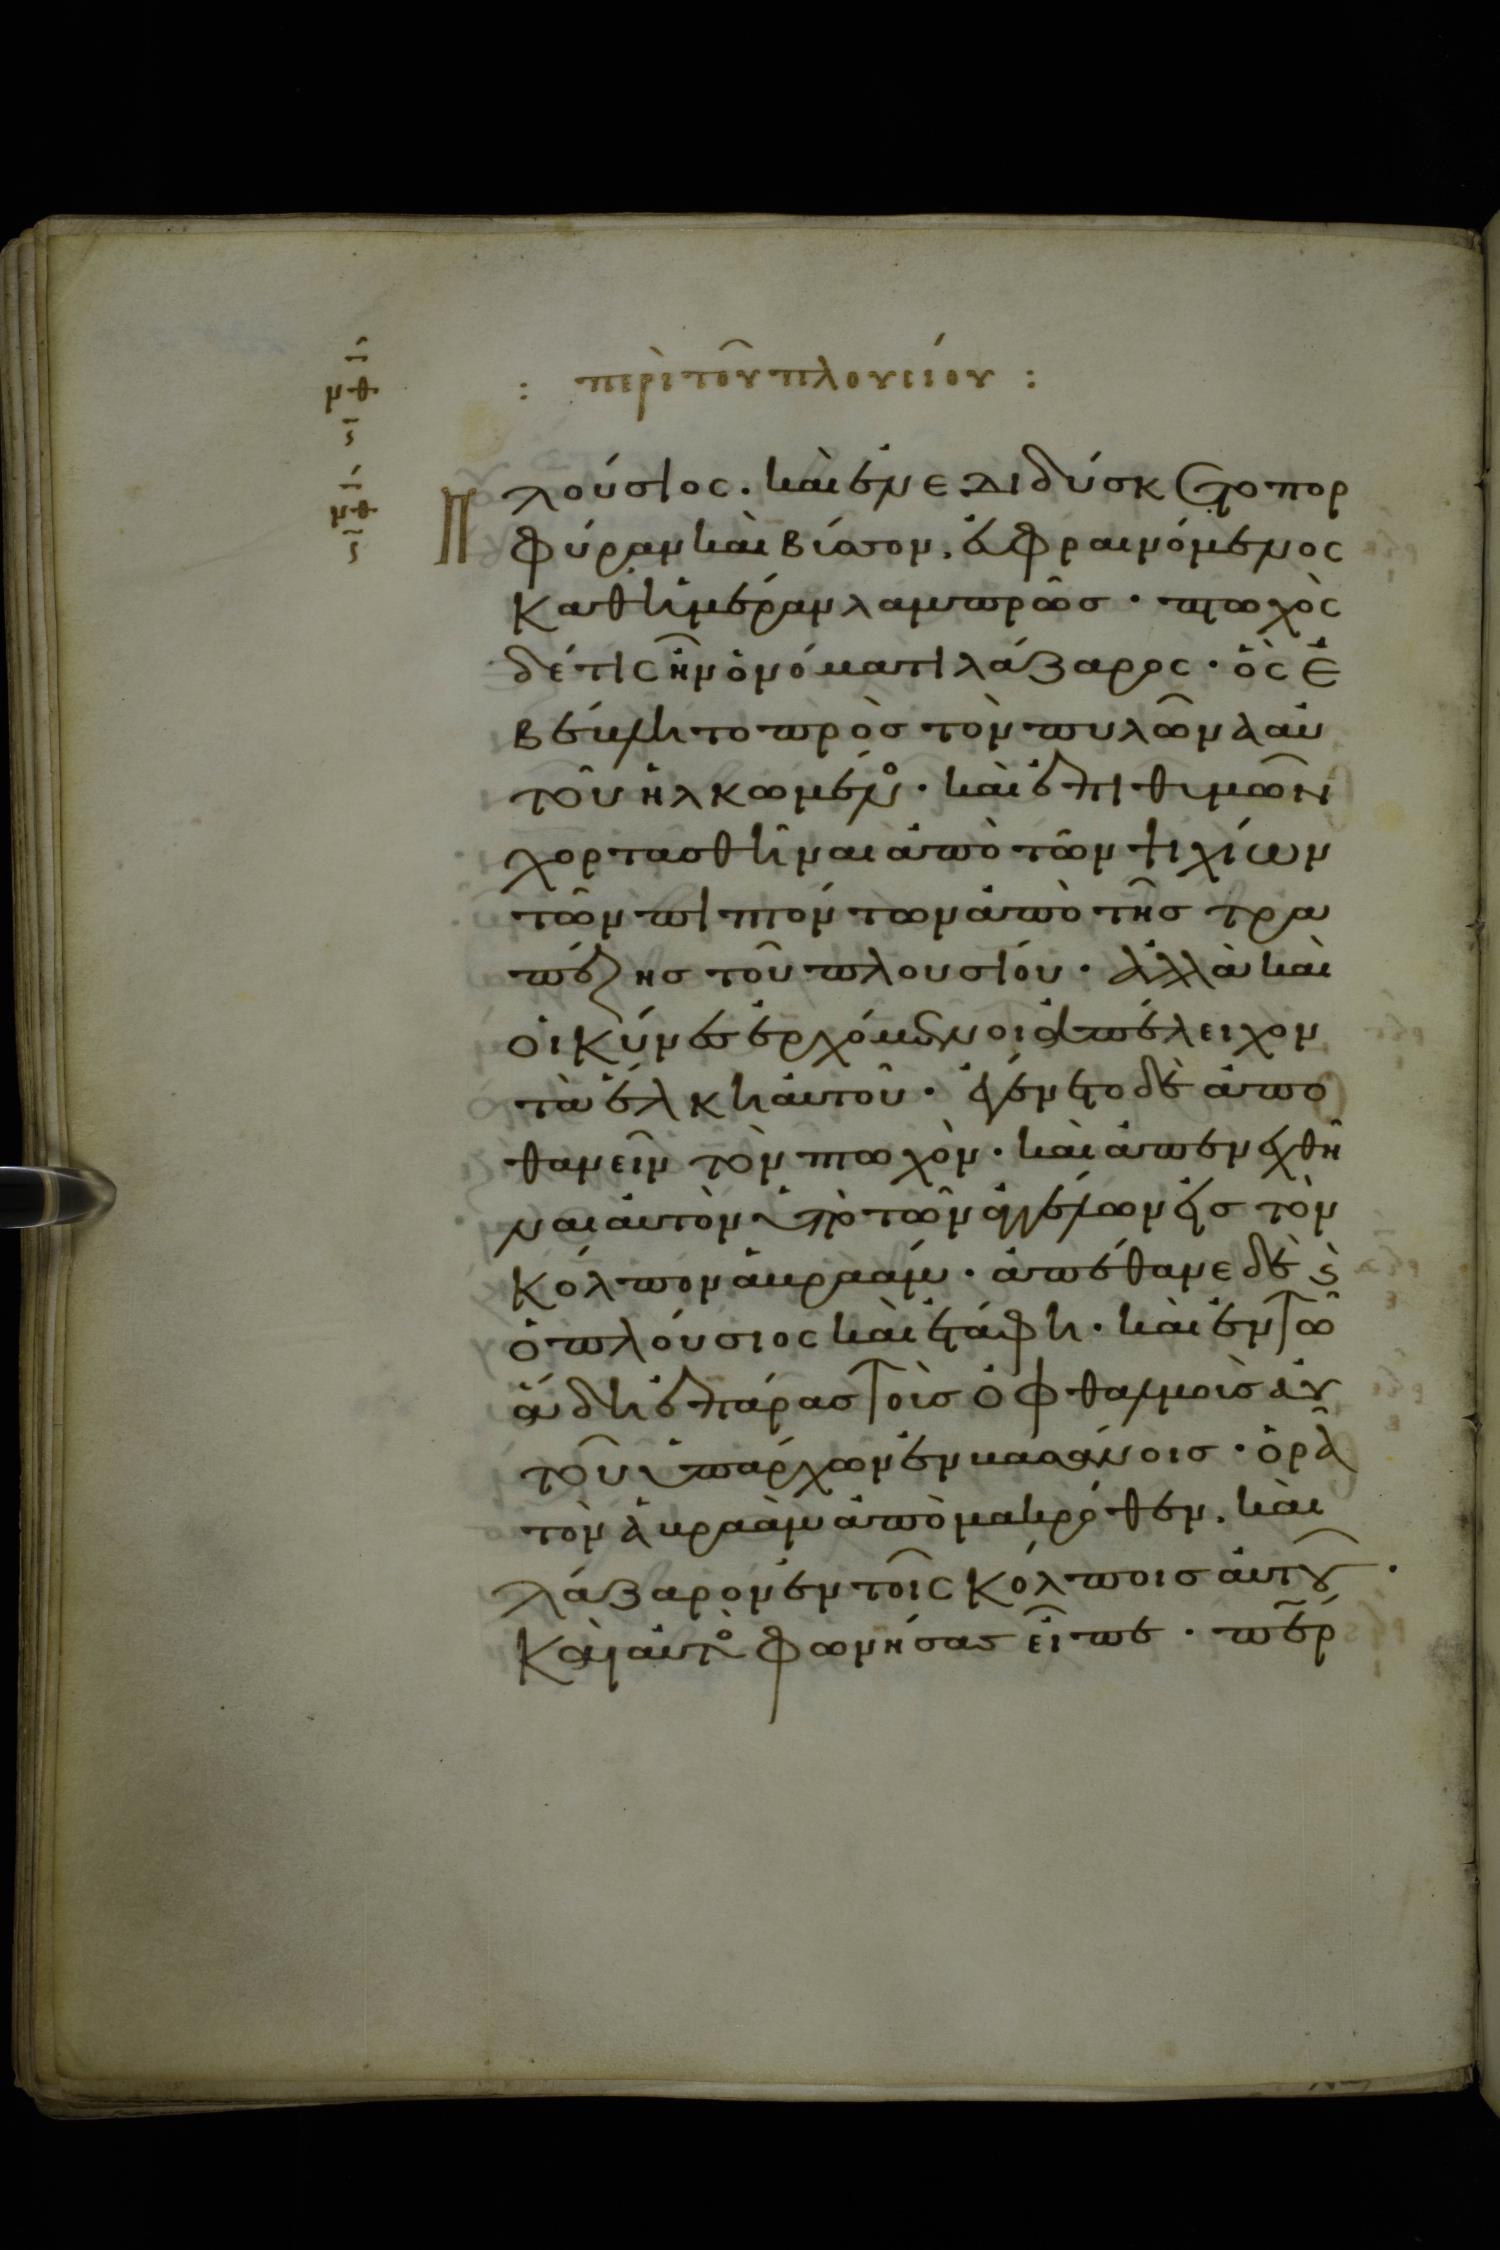 : περὶ τοῦ πλουσίου :
Πλούσιος. καὶ ἐνεδιδύσκετο πορ
φύραν καὶ βύσσον, εὐφραινόμενος
καθημέραν λαμπρῶσ · πτωχὸς
δέ τις ἦν ὀνόματι λάζαρος · ὃς ἐ
βέβλητο πρὸσ τὸν πυλῶνα αὐ
τοῦ ἡλκωμένος · καὶ ἐπιθυμῶν
χορτασθῆναι ἀπὸ τῶν ψιχίων
τῶν πιπτόντων ἀπὸ τῆσ τρα
πέζησ τοῦ πλουσίου · ἀλλὰ καὶ
οἱ κύνες ἐρχόμενοι ἀπέλειχον
τὰ ἕλκη αὐτοῦ · ἐγένετο δὲ ἀπο
θανεῖν τὸν πτωχὸν · καὶ ἀπενεχθῆ
ναι αὐτὸν ὑπὸ τῶν ἀγγέλων εἰσ τὸν
κόλπον ἀβραάμ · ἀπέθανε δὲ ϗ
ὁ πλούσιος καὶ ἐτάφη · καὶ ἐν τῶ
ἅδη ἐπάρας τοὺσ ὀφθαλμοὺσ αὐ
τοῦ ὑπάρχων ἐν βασάνοισ · ὁρᾶ
τὸν ἀβραὰμ ἀπὸ μακρόθεν. καὶ
λάζαρον ἐν τοῖς κόλποισ αὐτοῦ ·
καὶ αὐτὸς φωνήσας εἶπε · περ